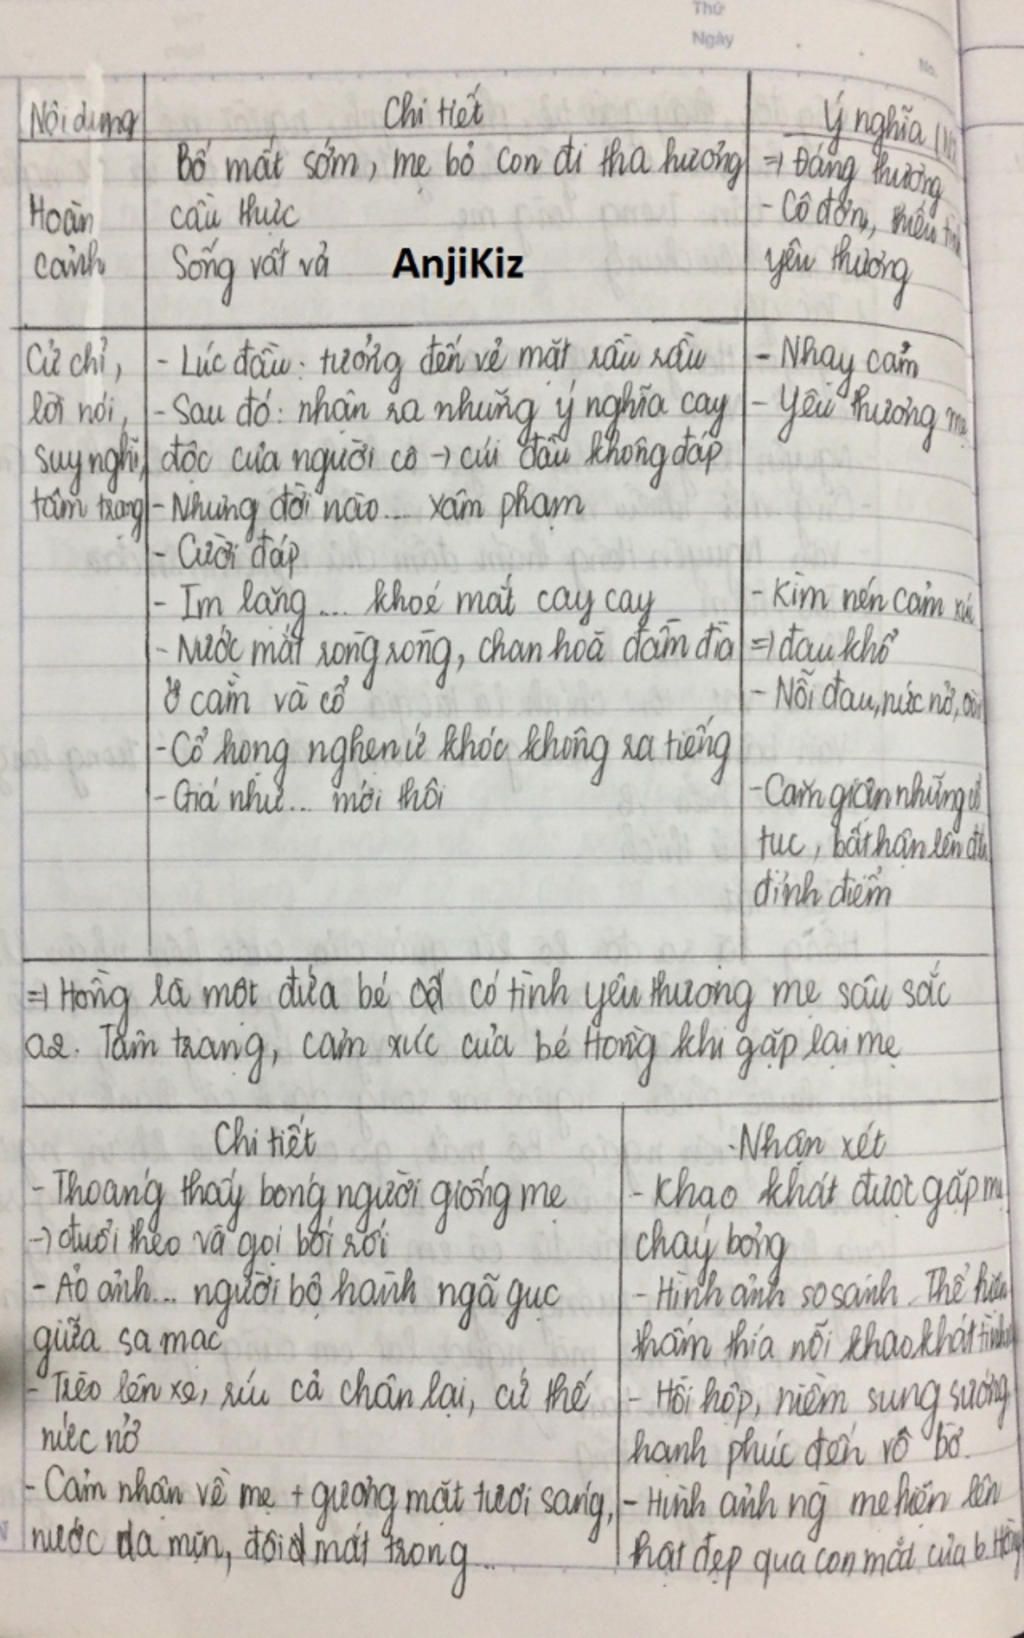 Thứ
Ngày
No.
Nội dung
Chi tiết
Ý nghĩa
Hoàn
cảnh
Bố mất sớm, mẹ bỏ con đi tha hương
cầu thực
Sống vất vả
AnjiKiz
=> Đáng thương
- Cô đơn, thiếu tình
yêu thương
Cử chỉ,
lời nói,
suy nghĩ,
tâm trạng
- Lúc đầu: tưởng đến vẻ mặt rầu rầu
- Sau đó: nhận ra những ý nghĩa cay
độc của người cô → cúi đầu không đáp
- Nhưng đời nào... xâm phạm
- Cười đáp
- Im lặng ... khoé mắt cay cay
- Nước mắt ròng ròng, chan hoà đầm đìa
ở cằm và cổ
- Cổ họng nghẹn ứ khóc không ra tiếng
- Giá như... mới thôi
- Nhạy cảm
- Yêu thương mẹ
- Kìm nén cảm xúc
=> đau khổ
- Nỗi đau, nức nở,
- Căm giận những cổ
tục, bất hận lên đến
đỉnh điểm
=> Hồng là một đứa bé có tình yêu thương mẹ sâu sắc
a2. Tâm trạng, cảm xúc của bé Hồng khi gặp lại mẹ
Chi tiết
- Thoáng thấy bóng người giống mẹ
→ đuổi theo và gọi bối rối
- Ảo ảnh... người bộ hành ngã gục
giữa sa mạc
- Trèo lên xe, ríu cả chân lại, cứ thế
nức nở
- Cảm nhận về mẹ + gương mặt tươi sáng,
nước da mịn, đôi mắt trong...
- Nhận xét
- Khao khát được gặp mẹ
cháy bỏng
- Hình ảnh so sánh. Thể hiện
thấm thía nỗi khao khát tình
- Hồi hộp, niềm sung sướng
hạnh phúc đến vô bờ.
- Hình ảnh ng mẹ hiện lên
thật đẹp qua con mắt của b. Hồng